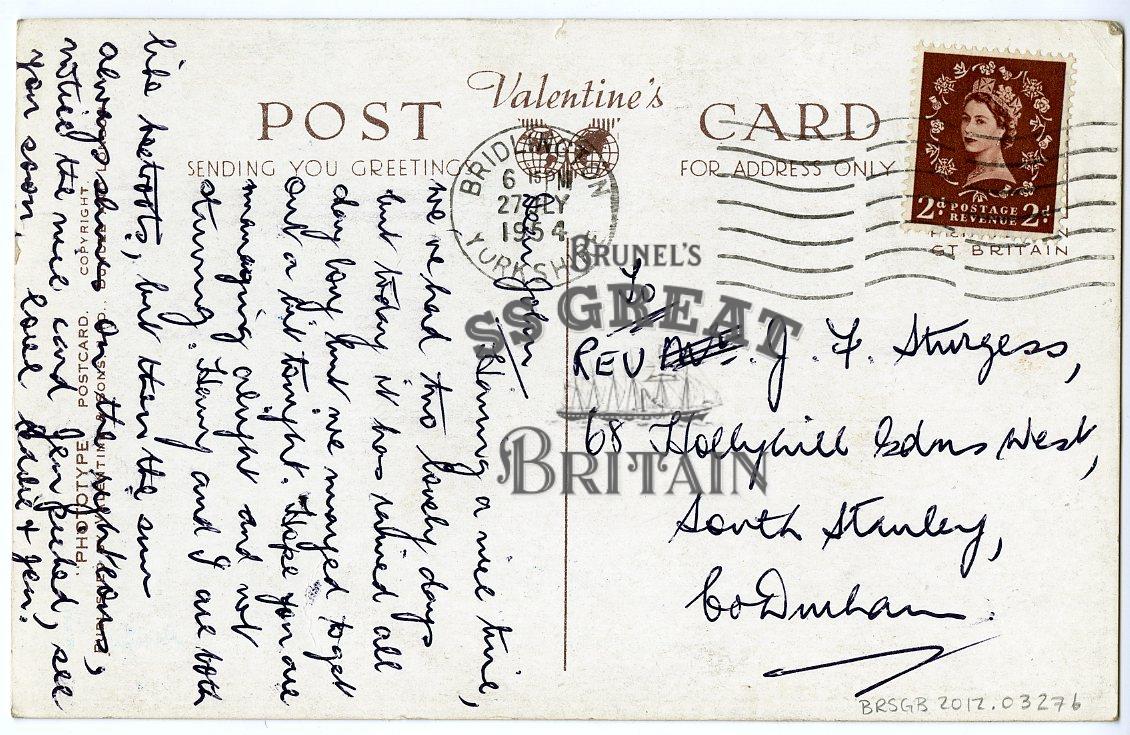 Valentine's
POST CARD
SENDING YOU GREETINGS
FOR ADDRESS ONLY
BRIDLINGTON
6 15 PM
27 JLY
1954
YORKSHIRE
2D POSTAGE REVENUE 2D
PRINTED IN
GT BRITAIN
Dear John,
Having a nice time,
we've had two lovely days
but today it has rained all
day long but we manged to get
out a bit tonight. Hope you are
managing alright and not
starving. Henry and I are both
like beetroots, but then the sun
always shines on the righteous,
notice the nice card Jen picked, see
you soon, love & Jen.
To
REV J. F. Sturgess,
68 Hollyhill Gdns West,
South Stanley,
Co Durham.
PHOTOTYPE POSTCARD. COPYRIGHT
BRUNEL'S
SS GREAT
BRITAIN
BRSGB 2012.03276